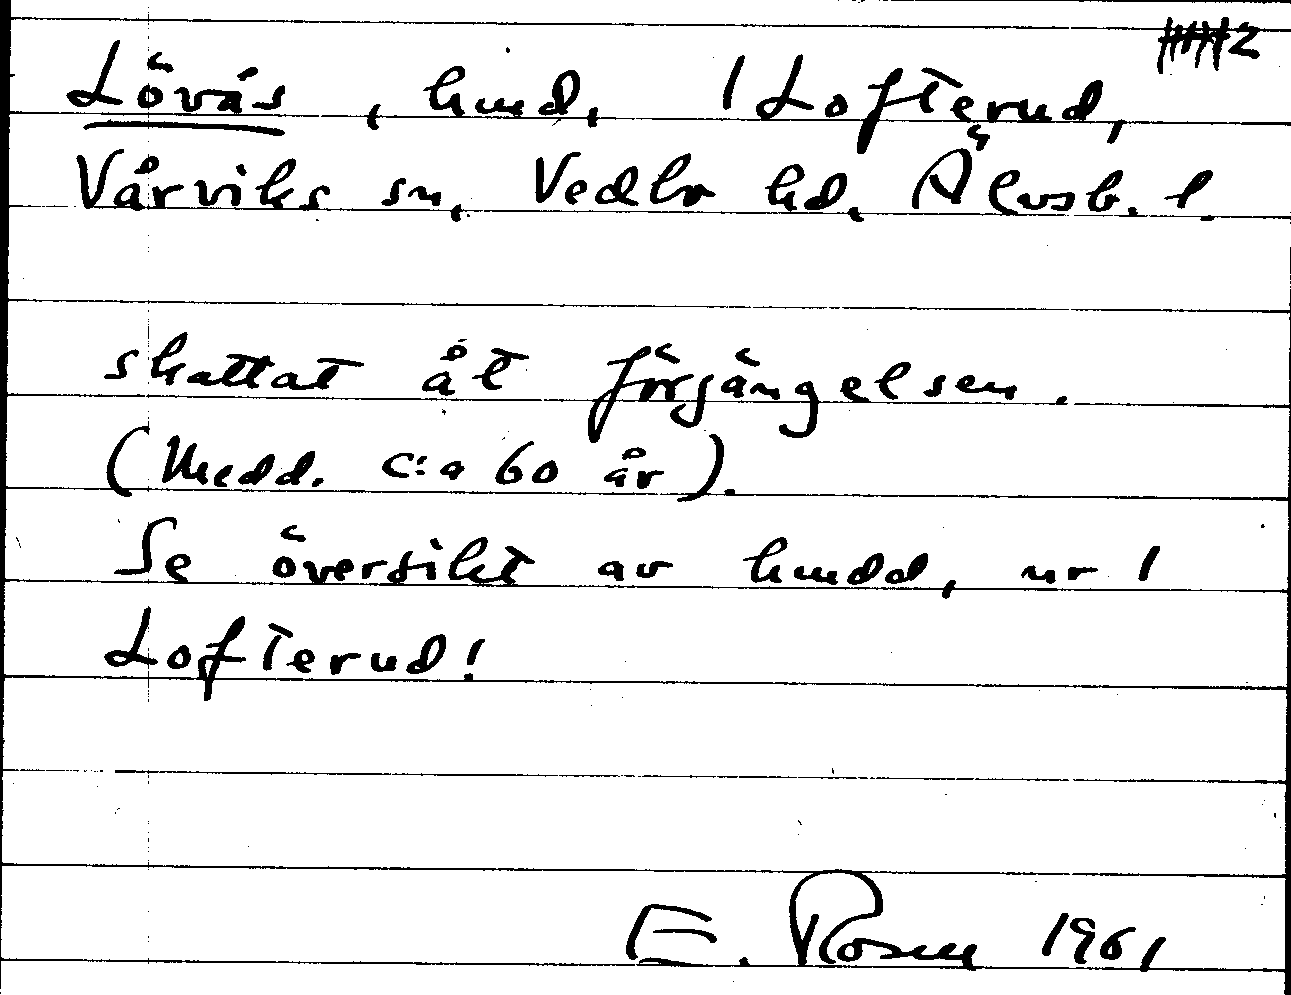 2
Lövås, hmd, 1 Lofterud,
Vårviks sn, Vedbo hd, Älvsb. l.
skattat åt förgängelsen.
(Medd. c:a 60 år).
Se översikt av hmdd, nr 1
Lofterud!
E. Rosen 1961